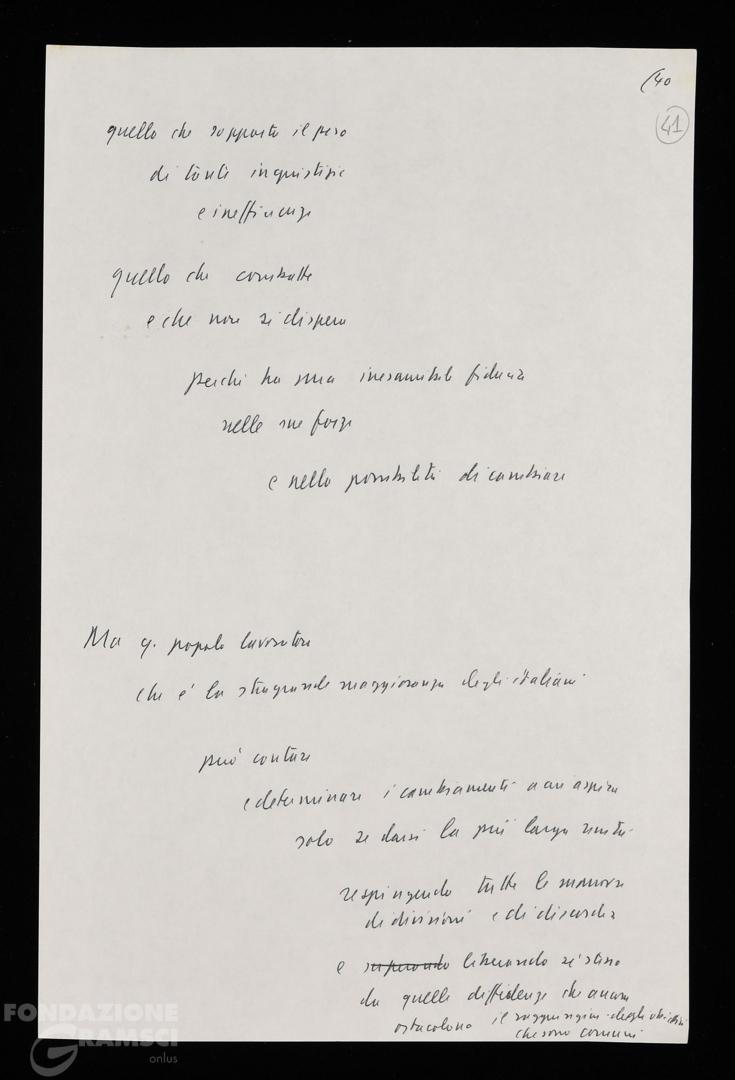 (40
41
quello che sopporta il peso
di tante ingiustizie
e inefficienze
quello che combatte
e che non si dispera
perché ha una inesauribile fiducia
nelle sue forze
e nella possibilità di cambiare
Ma q. popolo lavoratore
che è la stragrande maggioranza degli italiani
può contare
e determinare i cambiamenti a cui aspira
solo se darsi la più larga unità
respingendo tutte le manovre
di divisioni e di discordia
e superando liberando se stesso
da quelle diffidenze che ancora
ostacolano il raggiungim. degli obiettivi
che sono comuni
FONDAZIONE
GRAMSCI
onlus